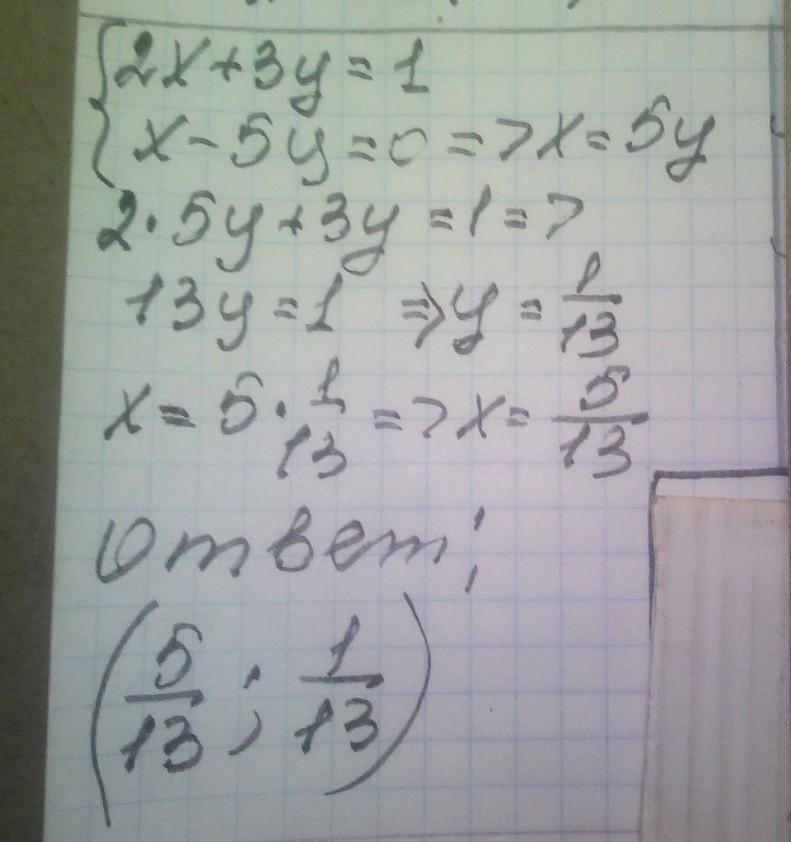 {2x+3y=1
{x-5y=0=>x=5y
2·5y+3y=1=>
13y=1 =>y=1/13
x=5·1/13=>x=5/13
Ответ:
(5/13;1/13)